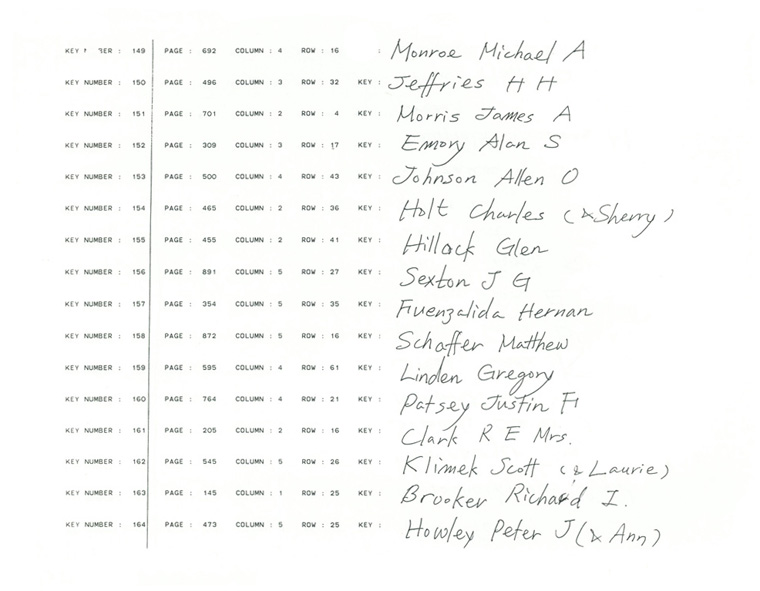 KEY NUMBER : 149 PAGE : 692 COLUMN : 4 ROW : 16 : Monroe Michael A
KEY NUMBER : 150 PAGE : 496 COLUMN : 3 ROW : 32 KEY : Jeffries H H
KEY NUMBER : 151 PAGE : 701 COLUMN : 2 ROW : 4 KEY : Morris James A
KEY NUMBER : 152 PAGE : 309 COLUMN : 3 ROW : 17 KEY : Emory Alan S
KEY NUMBER : 153 PAGE : 500 COLUMN : 4 ROW : 43 KEY : Johnson Allen O
KEY NUMBER : 154 PAGE : 465 COLUMN : 2 ROW : 36 KEY : Holt Charles (& Sherry)
KEY NUMBER : 155 PAGE : 455 COLUMN : 2 ROW : 41 KEY : Hillock Glen
KEY NUMBER : 156 PAGE : 891 COLUMN : 5 ROW : 27 KEY : Sexton J G
KEY NUMBER : 157 PAGE : 354 COLUMN : 5 ROW : 35 KEY : Fuenzalida Hernan
KEY NUMBER : 158 PAGE : 872 COLUMN : 5 ROW : 16 KEY : Schaffer Matthew
KEY NUMBER : 159 PAGE : 595 COLUMN : 4 ROW : 61 KEY : Linden Gregory
KEY NUMBER : 160 PAGE : 764 COLUMN : 4 ROW : 21 KEY : Patsey Justin F
KEY NUMBER : 161 PAGE : 205 COLUMN : 2 ROW : 16 KEY : Clark R E Mrs.
KEY NUMBER : 162 PAGE : 545 COLUMN : 5 ROW : 26 KEY : Klimek Scott (& Laurie)
KEY NUMBER : 163 PAGE : 145 COLUMN : 1 ROW : 25 KEY : Brooker Richard I.
KEY NUMBER : 164 PAGE : 473 COLUMN : 5 ROW : 25 KEY : Howley Peter J (& Ann)